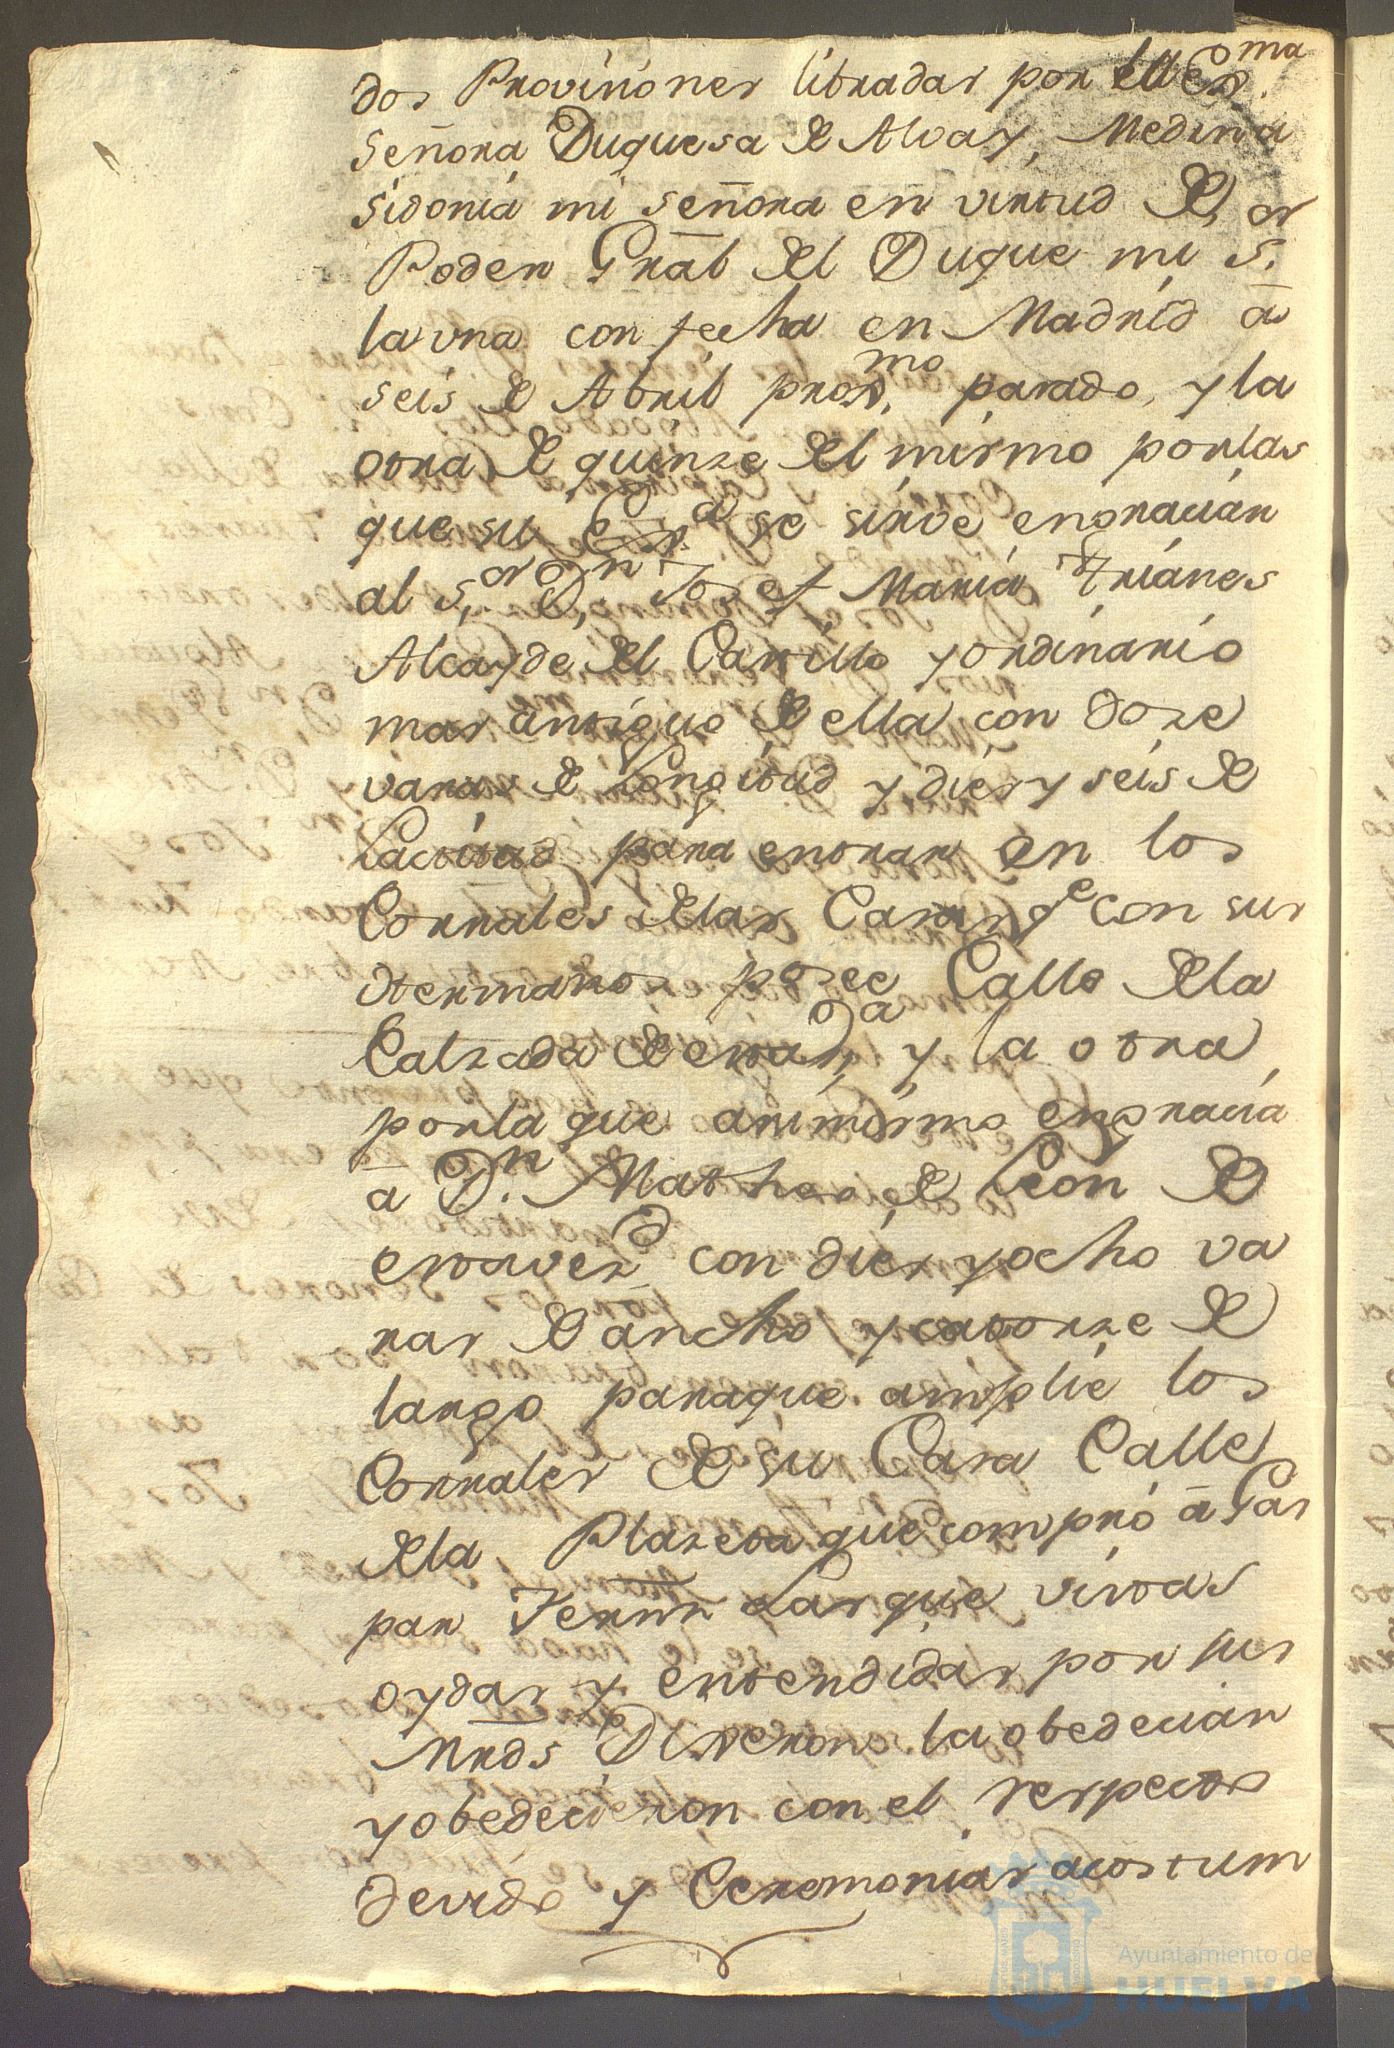 dos Provisiones libradas por la Ex.ma
Señora Duquesa de Alva y Medina
sidonia mi señora en virtud de
Poder Gnāl del Duque mi S.or
la vna con fecha en Madrid ā
seis de Abril prox.mo pasado, y la
otra de quinze del mismo por las
que su Ex.a se sirve engraciar
al S.or D.n Josef Maria Trianes
Alcayde del Castillo y ordinario
mas antiguo de ella con doze
varas de Longitud y diez y seis de
Lactitud para entrar en los
Corrales de las Casas q.e con sus
Hermanos posee Calle de la
Calzada de esta V.a y la otra
por la que asimismo engracia
a D.n Matheo de Leon de
esta vez.d con diez y ocho va
ras de ancho y catorze de
largo para que amplie los
Corrales de su Casa Calle
de la Plazeta que compró ā Gas
par Ferrr Las que vistas
oydas y entendidas por sus
Mrds Dixeron la obedecian
y obedecieron con el respecto
devido y Ceremonias acostum
Ayuntamiento de
HUELVA